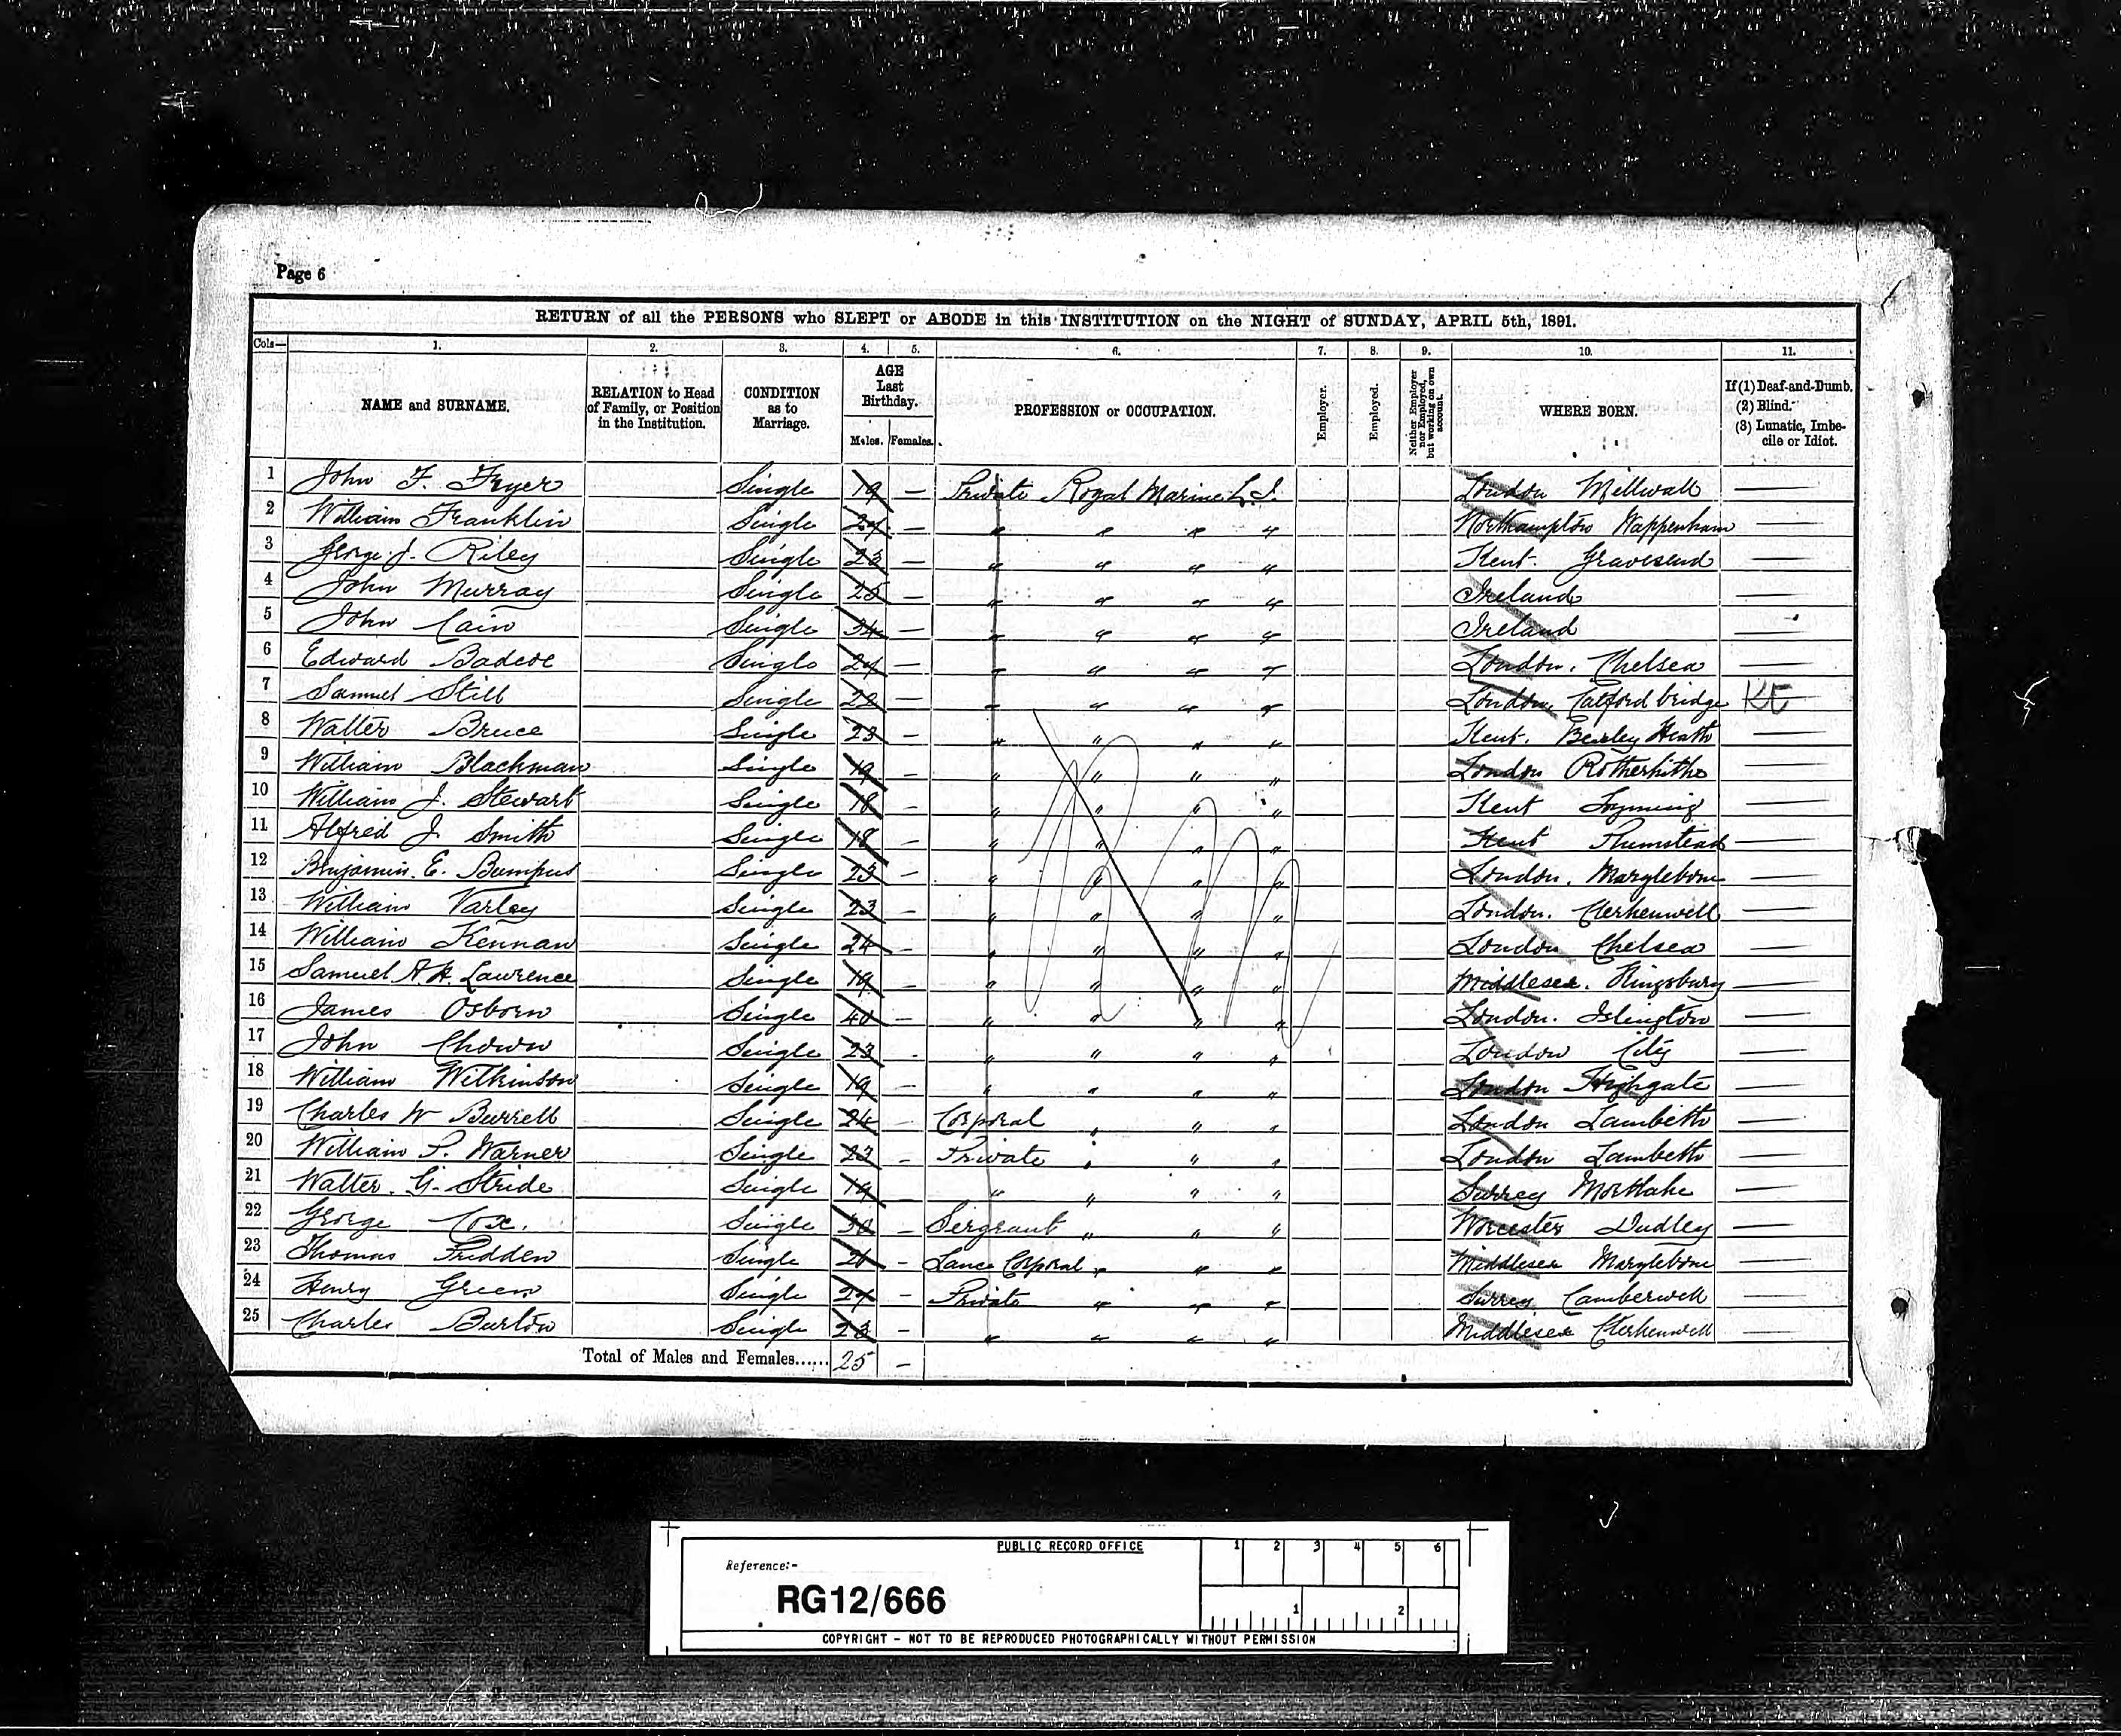 Page 6
RETURN of all the PERSONS who SLEPT or ABODE in this INSTITUTION on the NIGHT of SUNDAY, APRIL 5th, 1891.
Cols— 1. 2. 3. 4. 5. 6. 7. 8. 9. 10. 11.
NAME and SURNAME. RELATION to Head of Family, or Position in the Institution. CONDITION as to Marriage. AGE Last Birthday. Males. Females. PROFESSION or OCCUPATION. Employer. Employed. Neither Employer nor Employed, but working on own account. WHERE BORN. If (1) Deaf-and-Dumb. (2) Blind. (3) Lunatic, Imbecile or Idiot.
1 John F. Fryer Single 19 — Private Royal Marine L.I. London Millwall —
2 William Franklin Single — " " " " Northampton Wappenham —
3 George J. Riley Single 23 — " " " " Kent. Gravesend —
4 John Murray Single 25 — " " " " Ireland —
5 John Cain Single 34 — " " " " Ireland —
6 Edward Badcoe Single — " " " " London. Chelsea —
7 Samuel Still Single 22 — " " " " London. Catford bridge KE
8 Walter Bruce Single 23 — " " " " Kent. Bexley Heath —
9 William Blackman Single 19 — " " " " London Rotherhithe —
10 William J. Stewart Single 18 — " " " " Kent Lyming —
11 Alfred J. Smith Single 18 — " " " " Kent Plumstead —
12 Benjamin. E. Bumpus Single 23 — " " " " London. Marylebone —
13 William Varley Single 23 — " " " " London. Clerkenwell —
14 William Kennan Single 24 — " " " " London Chelsea —
15 Samuel A. H. Lawrence Single 19 — " " " " Middlesex. Kingsbury —
16 James Osborn Single 40 — " " " " London. Islington —
17 John Chown Single 23 - " " " " London City —
18 William Wilkinson Single 19 — " " " " London Highgate —
19 Charles W Burrell Single 24 — Corporal " " " London Lambeth —
20 William S. Warner Single 23 — Private " " " London Lambeth —
21 Walter. G. Stride Single 19 — " " " " Surrey Mortlake —
22 George Cox. Single 30 — Sergeant " " " Worcester Dudley —
23 Thomas Pridden Single — Lance Corporal " " " Middlesex Marylebone —
24 Henry Green Single — Private " " " Surrey Camberwell —
25 Charles Burton Single 23 — " " " " Middlesex Clerkenwell —
Total of Males and Females...... 25 —
PUBLIC RECORD OFFICE
Reference:-
RG12/666
1 2 3 4 5 6
1 2
COPYRIGHT - NOT TO BE REPRODUCED PHOTOGRAPHICALLY WITHOUT PERMISSION